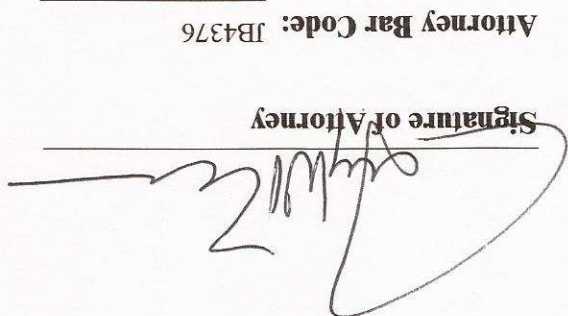 Signature of Attorney
Attorney Bar Code: JB4376